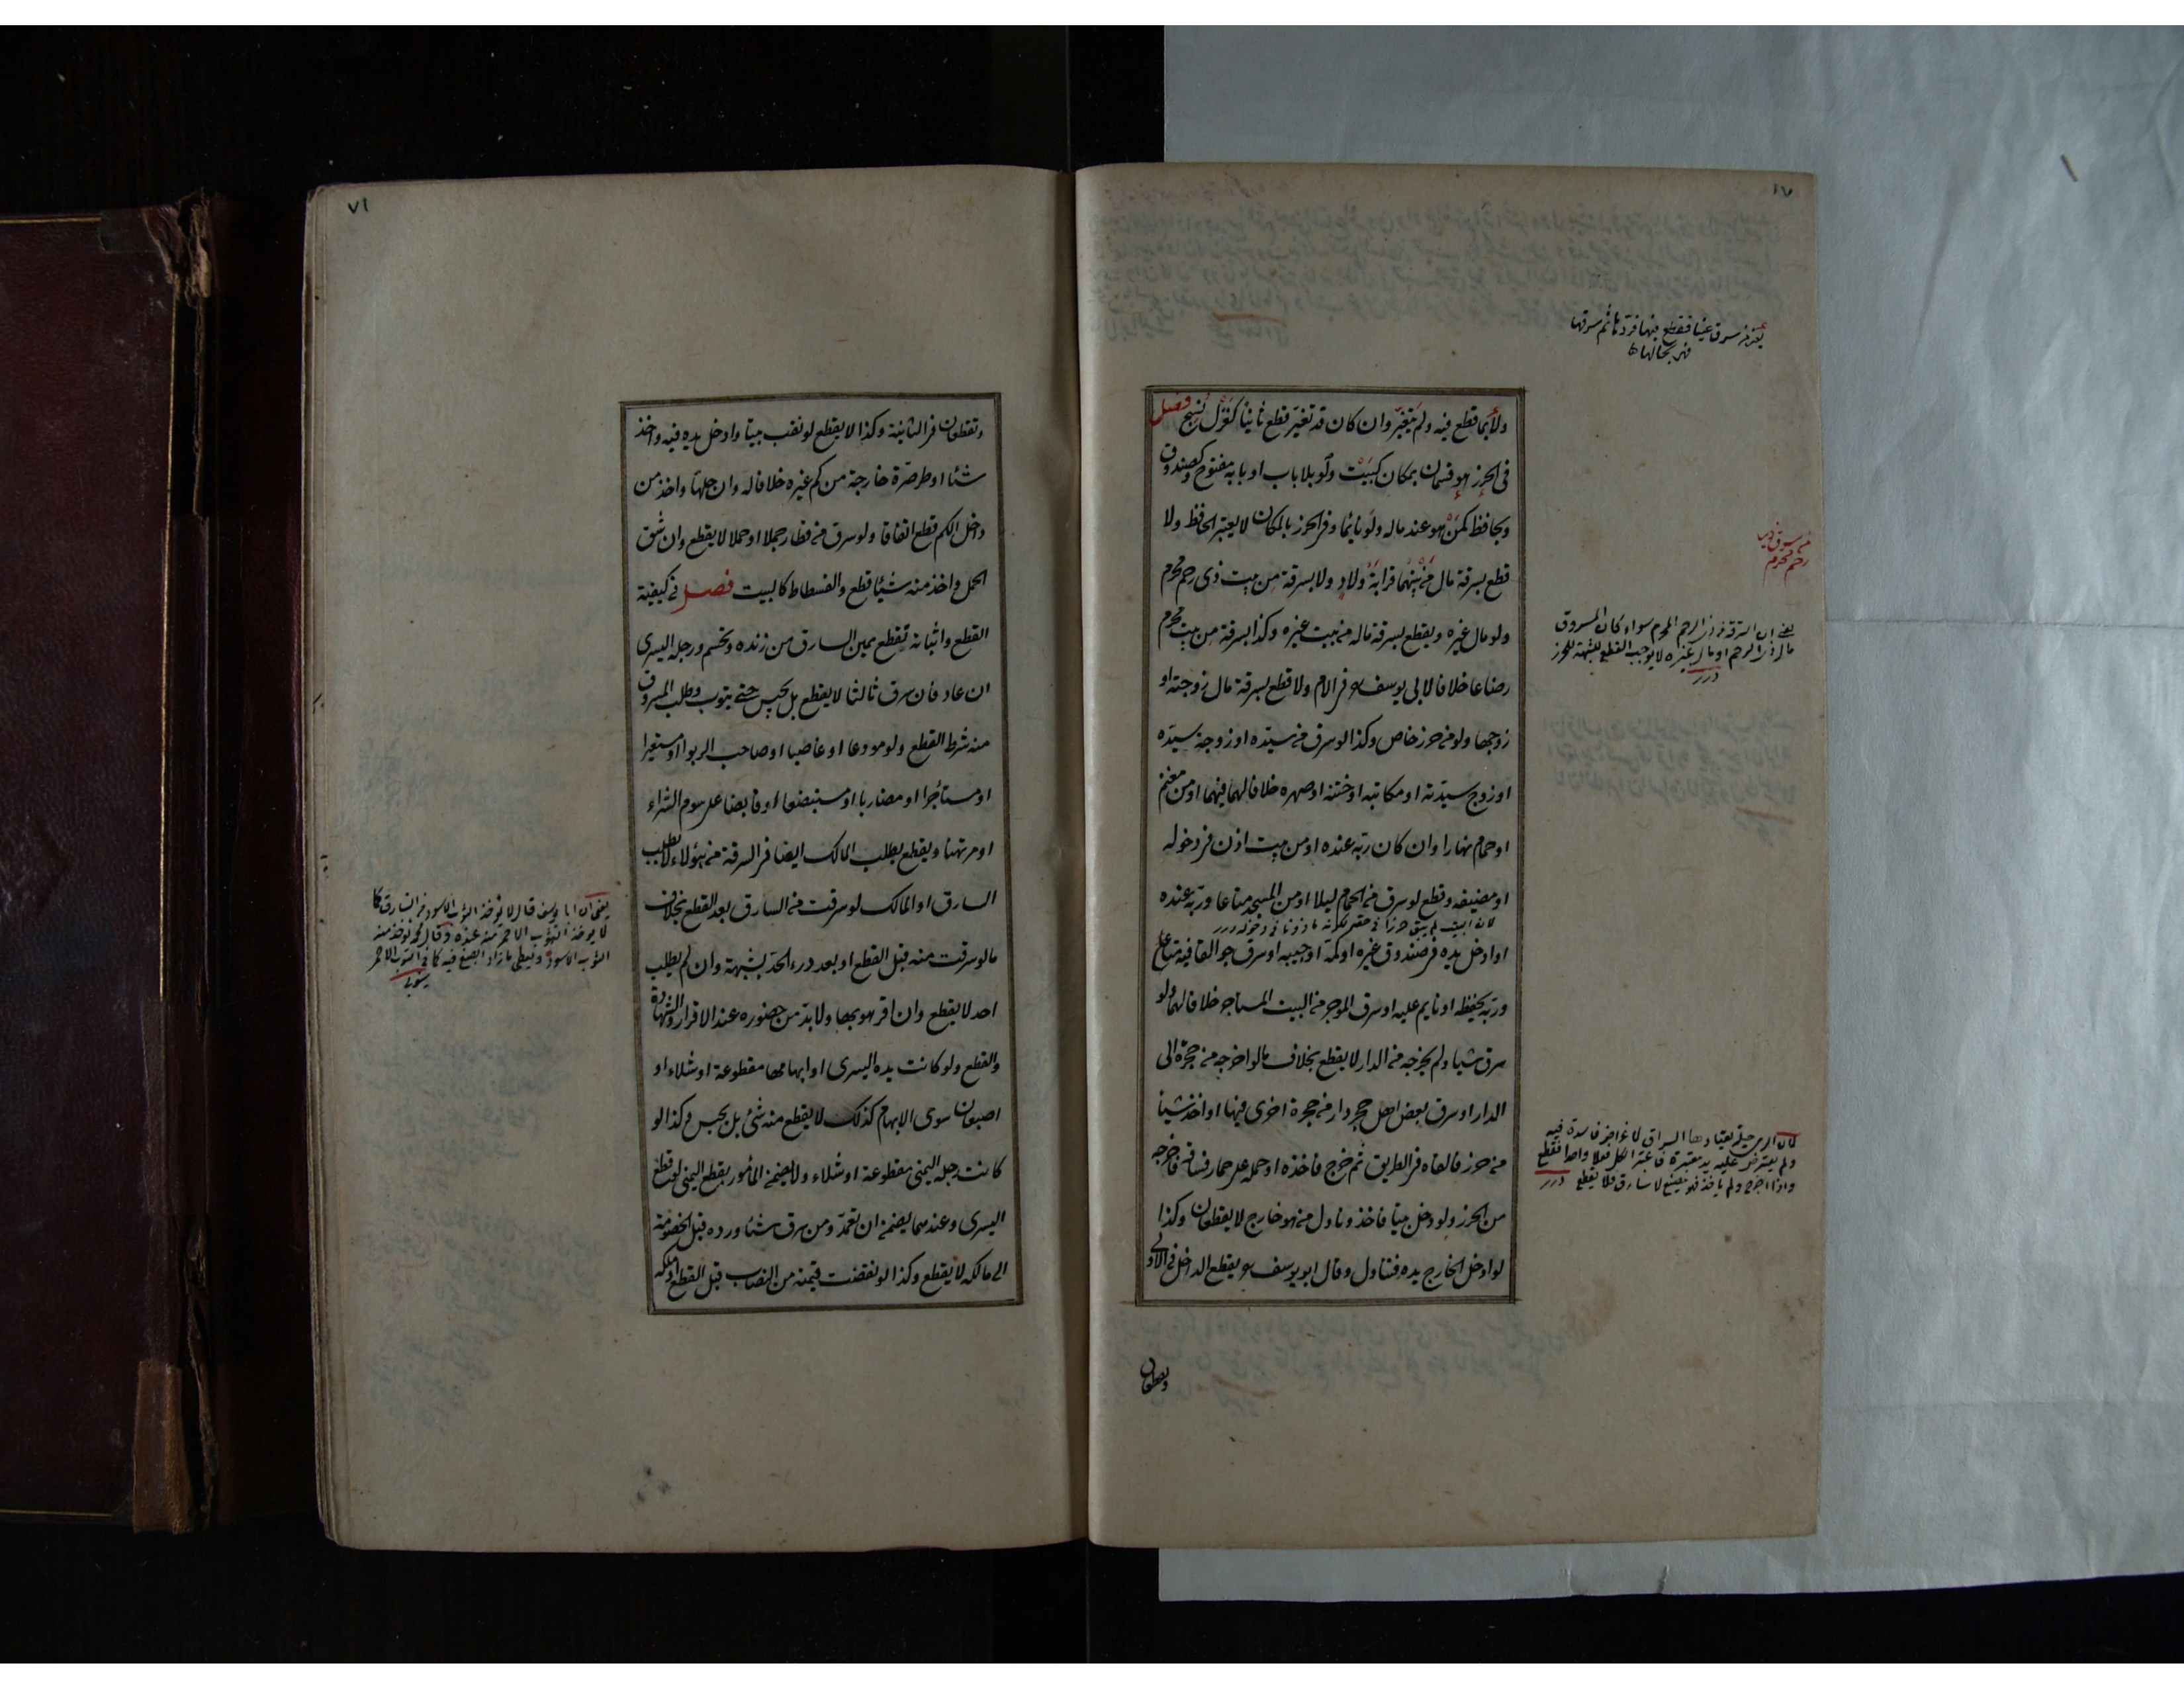 ولا بما قطع فيه ولم يتغير وان كان قد تغير قطع ثانيا كغزل نسج فصل
فى الحرز هو قسمان بمكان كبيت ولو بلا باب او بابه مفتوح وكصندوق
وبحافظ كمن هو عند ماله ولو نائما وفى الحرز بالمكان لا يعتبر الحافظ ولا
قطع بسرقة مال من بينهما قرابة ولاد ولا بسرقة من بيت ذى رحم محرم
ولو مال غيره ويقطع بسرقة ماله من بيت غيره وكذا بسرقة من بيت محرم
رضاعا خلافا لابى يوسف فى الام ولا قطع بسرقة مال زوجته او
زوجها ولو من حرز خاص وكذا لو سرق من سيده او زوجة سيده
او زوج سيدته او مكاتبه او ختنه او صهره خلافا لهما فيهما او من مغنم
او حمام نهارا وان كان ربه عنده او من بيت اذن فى دخوله
او مضيفه وقطع لو سرق من الحمام ليلا او من المسجد متاعا وربه عنده
لان البيت لم يبق حرزا فى حقه لكونه ماذونا فى دخوله درر
او ادخل يده فى صندوق غيره او كمه او جيبه او سرق جوالقا فيه متاع
وربه يحفظه او نايم عليه او سرق الموجر من البيت المستاجر خلافا لهما ولو
سرق شيا ولم يخرجه من الدار لا يقطع بخلاف مالو اخرجه من حجرة الى
الدار او سرق بعض اهل حجر دار من حجرة اخرى فيها او اخذ شيئا
من حرز فالقاه فى الطريق ثم خرج فاخذه او حمله على حمار فساقه فاخرجه
من الحرز ولو دخل بيتا فاخذ وناول من هو خارج لا يقطعان وكذا
لو ادخل الخارج يده فتناول وقال ابو يوسف يقطع الداخل فى الاولى
ويقطعان
يعنى من سرق عينا فقطع فيها فردها ثم سرقها
وهى بحالها
من سرق من ذى
رحم محرم
يعنى ان السرقة من ذى الرحم المحرم سواء كان المسروق
مال ذى الرحم او مال غيره لا يوجب القطع للشبهة للحرز
درر
لان الرمى حيلة يعتادها السراق لاغراض فاسدة فيه
ولم يعترض عليه يد معتبرة فاعتبر الكل فعلا واحدا فقطع
واذا اخرج ولم ياخذ فهو مضيع لا سارق فلا يقطع درر
٧١
ويقطعان فى الثانية وكذا لا يقطع لو نقب بيتا وادخل يده فيه واخذ
شئا او طر صرة خارجة من كم غيره خلافا له وان حلها واخذ من
داخل الكم قطع اتفاقا ولو سرق من قطار جملا او حملا لا يقطع وان شق
الحمل واخذ منه شيئا قطع والفسطاط كالبيت فصل فى كيفية
القطع واثباته تقطع يمين السارق من زنده وتحسم ورجله اليسرى
ان عاد فان سرق ثالثا لا يقطع بل يحبس حتى يتوب وطلب المسروق
منه شرط القطع ولو مودعا او غاصبا او صاحب الربوا او مستعيرا
او مستأجرا او مضاربا او مستبضعا او قابضا على سوم الشراء
او مرتهنا ويقطع بطلب المالك ايضا فى السرقة من هؤلاء لا بطلب
السارق او المالك لو سرقت من السارق بعد القطع بخلاف
مالو سرقت منه قبل القطع او بعد درء الحد بشبهة وان لم يطلب
احد لا يقطع وان اقر هو بها ولا بد من حضوره عند الاقرار والشهادة
والقطع ولو كانت يده اليسرى او ابهامها مقطوعة او شلاء او
اصبعان سوى الابهام كذلك لا يقطع منه شئ بل يحبس وكذا لو
كانت رجله اليمنى مقطوعة او شلاء ولا يضمن المأمور بقطع اليمنى لو قطع
اليسرى وعندهما يضمن ان تعمد ومن سرق شئا ورده قبل الخصومة
الى مالكه لا يقطع وكذا لو نقصت قيمته من النصاب قبل القطع او ملكه
يعنى ان ابا يوسف قال لا يؤخذ الثوب الاسود من السارق كما
لا يوخذ الثوب الاحمر منه عنده وقال محمد يوخذ منه
الثوب الاسود ويعطى ما زاد الصبغ فيه كما فى الثوب الاحمر